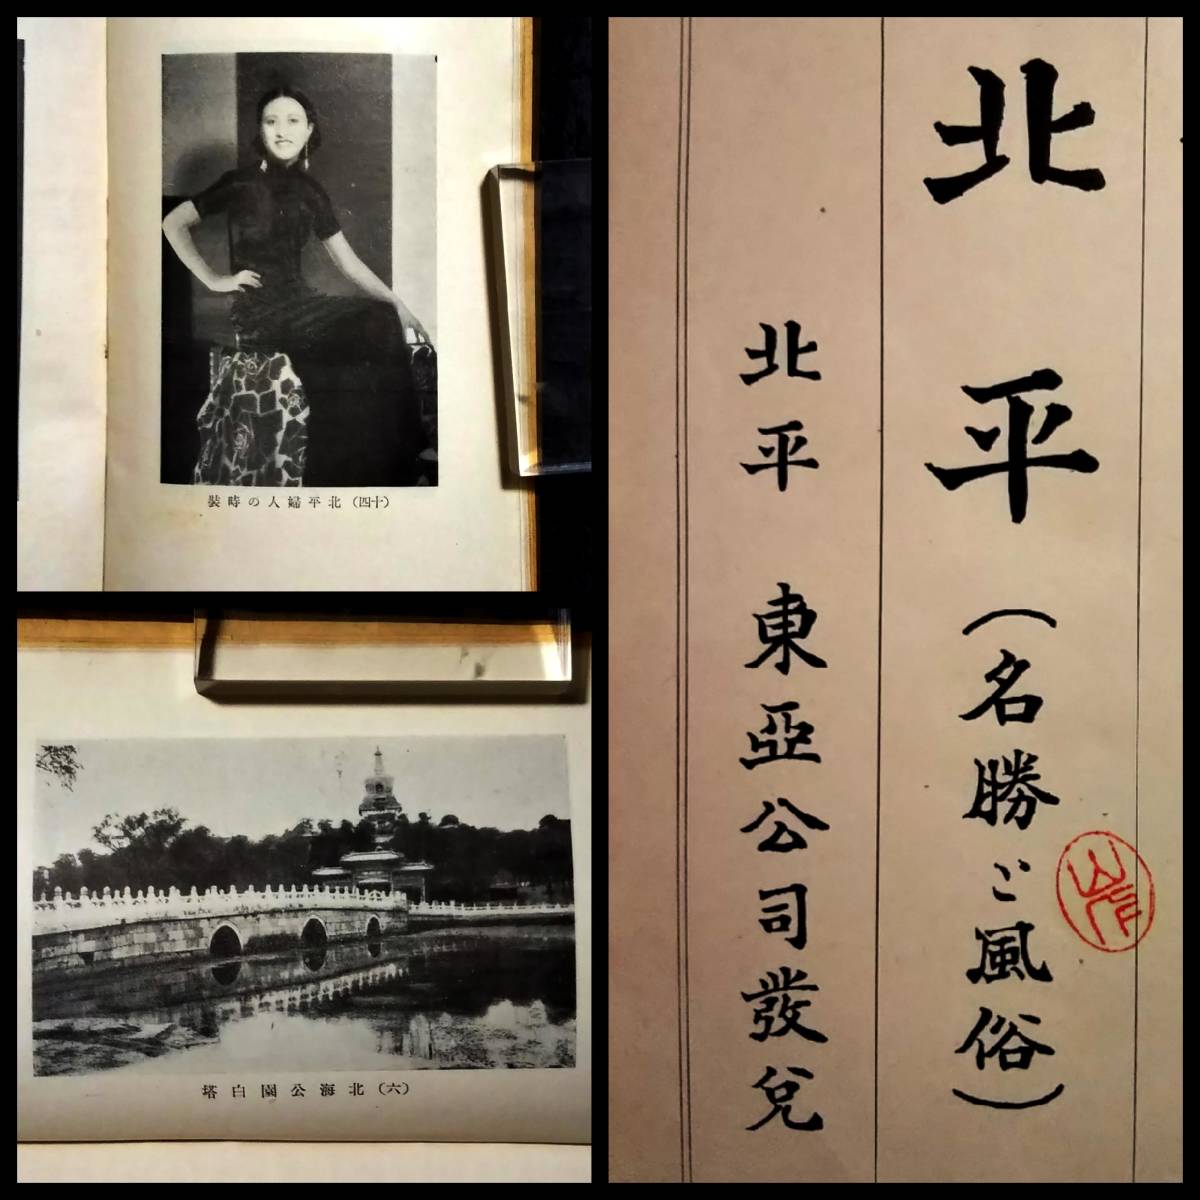 (十四)北平婦人の時裝
(六)北海公園白塔
北平(名勝と風俗)
北平 東亞公司發兌